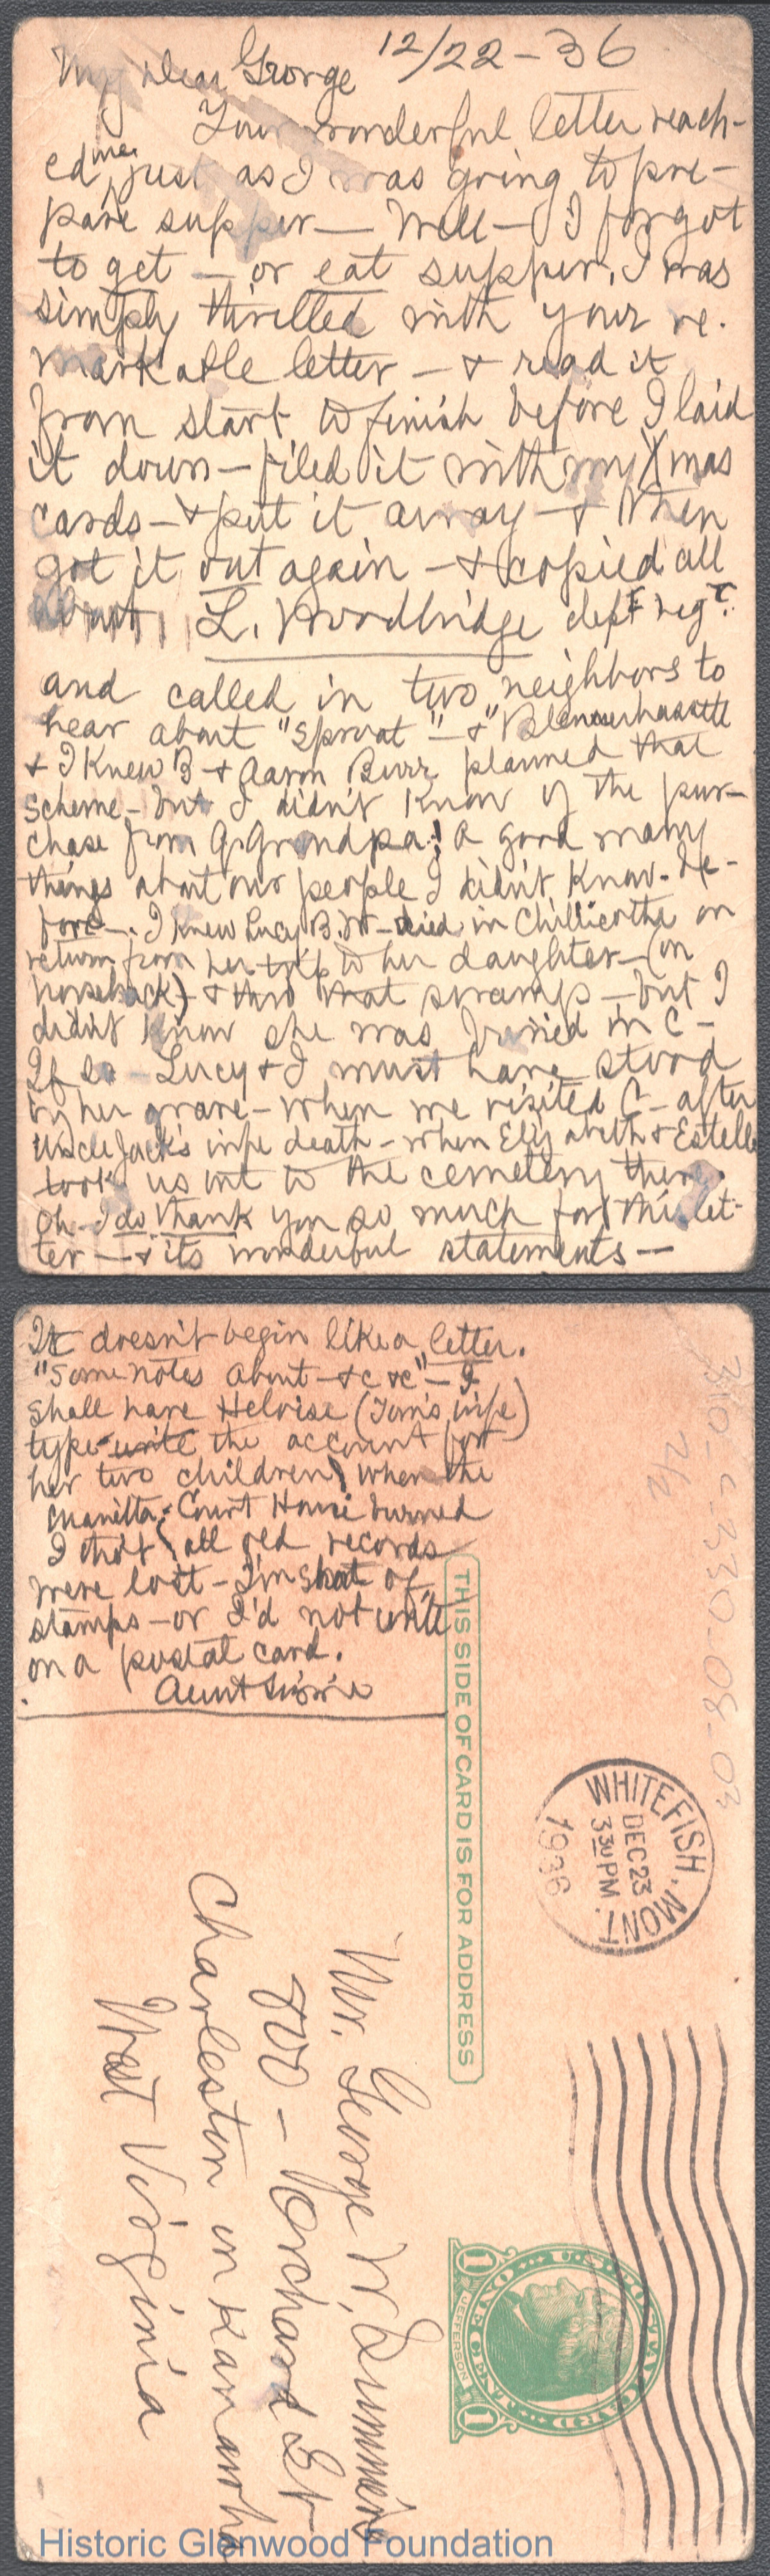 12/22-36
My dear George
Your wonderful letter reach-
ed me, just as I was going to pre-
pare supper — Well — I forgot
to get — or eat supper, I was
simply thrilled with your re-
markable letter — & read it
from start to finish before I laid
it down — filed it with my Xmas
cards — & put it away — & then
got it out again — & copied all
but L. Woodbridge
and called in two neighbors to
hear about "Sproat" — & "Blennerhassett
& I knew B & Aaron Burr planned that
scheme — but I didn't know of the pur-
chase from G. Grandpa! a good many
things about our people I didn't know be-
fore —. I knew Lucy B. W — died in Chillicothe on
return from her trip to her daughter — (on
horseback) — & thro that swamp — but I
didn't know she was buried in C —
If so — Lucy & I must have stood
by her grave — when we visited C — after
Uncle Jack's wife death — when Elizabeth & Estelle
took us out to the cemetery there.
Oh — I do thank you so much for this let-
ter — & its wonderful statements —
It doesn't begin like a letter.
"Some notes about — &c &c" — I
shall have Heloise (Tom's wife)
type-write the account for
her two children, when the
Marietta Court House burned
I tho't all old records
were lost — I'm short of
stamps — or I'd not write
on a postal card.
Aunt Lizzie
THIS SIDE OF CARD IS FOR ADDRESS
310-C-330-08-03
2/2
WHITEFISH, MONT.
DEC 23
3 30 PM
1936
Mr. George W. Summers
800 — Orchard St
Charleston on Kanawha
West Virginia
U.S. POSTAL CARD
ONE CENT
1 JEFFERSON 1
Historic Glenwood Foundation